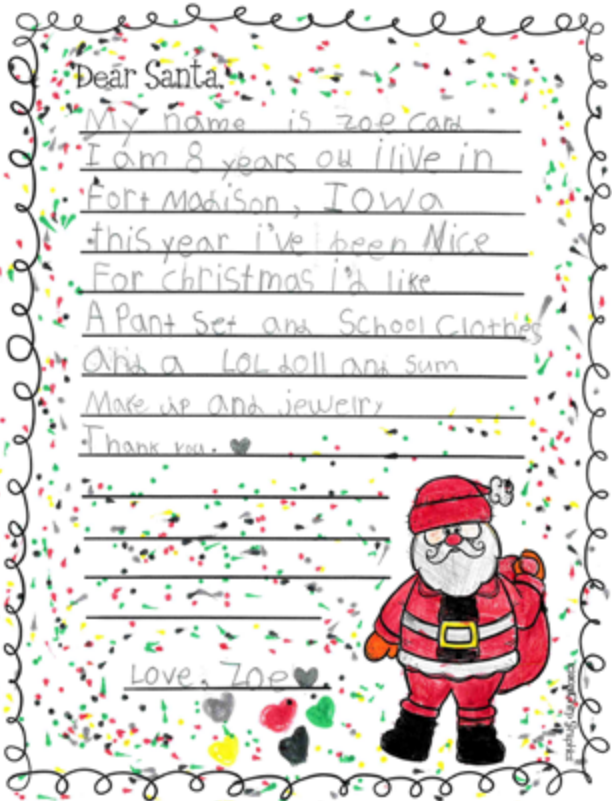 Dear Santa,
My name is zoe Card
I am 8 years old i live in
Fort Madison, Iowa
this year i've been Nice
For christmas i'd like
A Pant Set and School Clothes
and a LOL doll and sum
Make up and jewelry
Thank you.
Love, Zoe